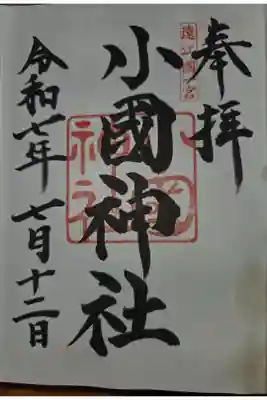 奉拝
遠江國一宮
小國神社
令和七年 七月十二日